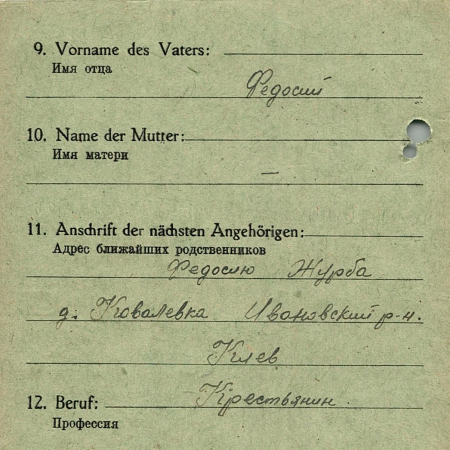 9. Vorname des Vaters:
Имя отца
Федосий
10. Name der Mutter:
Имя матери
—
11. Anschrift der nächsten Angehörigen:
Адрес ближайших родственников
Федосию Журба
д. Ковалевка Ивановский р-н.
Киев
12. Beruf: Крестьянин.
Профессия